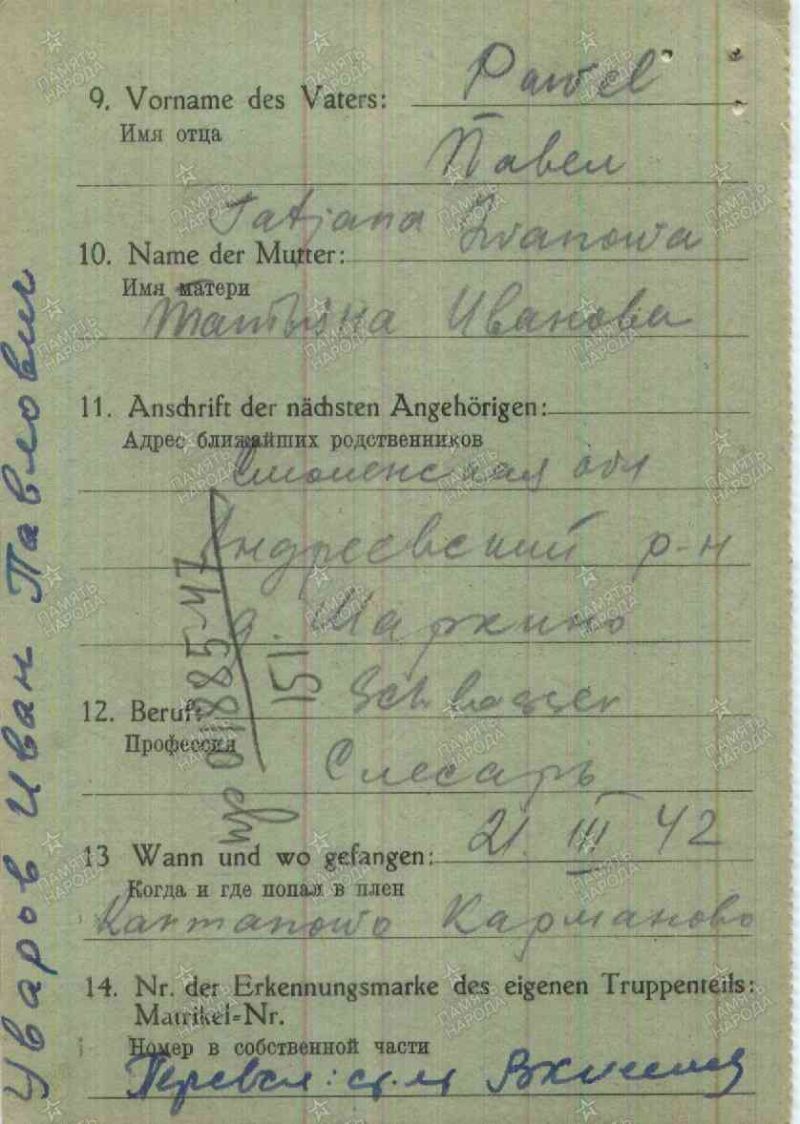 9. Vorname des Vaters: Pawel
Имя отца
Павел
Tatjana Iwanowa
10. Name der Mutter:
Имя матери
Татьяна Иванова
11. Anschrift der nächsten Angehörigen:
Адрес ближайших родственников
Смоленская обл
Андреевский р-н
д. Шаркино
Schlosser
12. Beruf:
Профессия
Слесарь
13 Wann und wo gefangen: 21. III 42
Когда и где попал в плен
Karmanowo Карманово
14. Nr. der Erkennungsmarke des eigenen Truppenteils:
Matrikel-Nr.
Номер в собственной части
Перевел:
Уваров Иван Павлович
151
ПАМЯТЬ НАРОДА